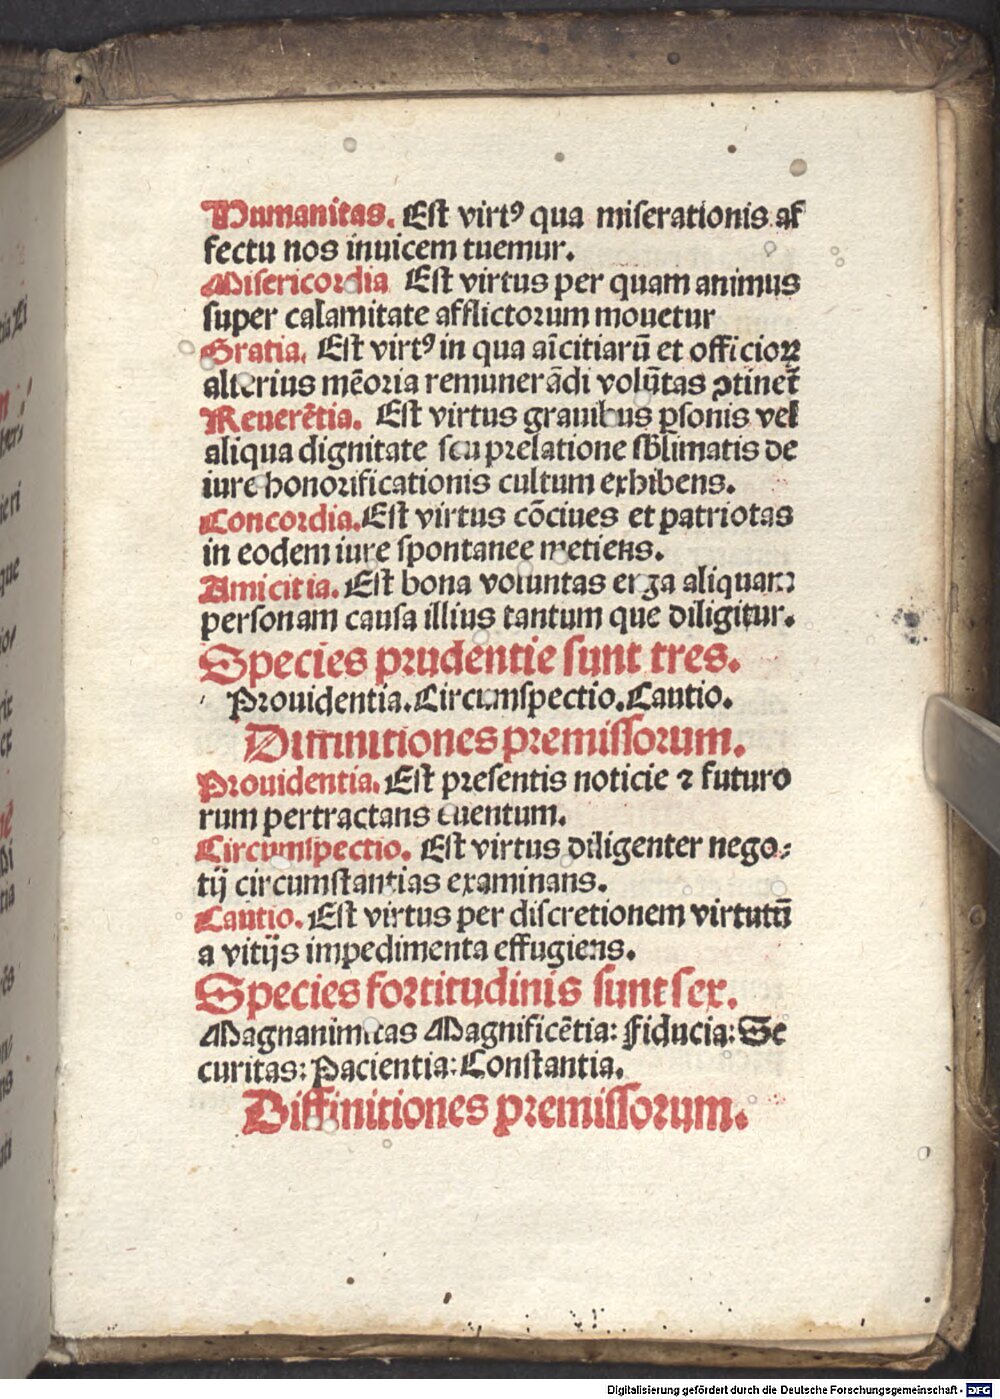 Humanitas. Est virtꝰ qua miserationis af
fectu nos inuicem tuemur.
Misericordia Est virtus per quam animus
super calamitate afflictorum mouetur
Gratia. Est virtꝰ in qua aı̄citiarū et officioꝝ
alterius mēoria remunerādi volūtas ↄtinet̄
Reuerētia. Est virtus grauibus ꝑsonis vel
aliqua dignitate seu prelatione sb̄limatis de
iure honorificationis cultum exhibens.
Concordia. Est virtus cōciues et patriotas
in eodem iure spontanee metiens.
Amicitia. Est bona voluntas erga aliquam
personam causa illius tantum que diligitur.
Species prudentie sunt tres.
Prouidentia. Circumspectio. Cautio.
Diffinitiones premissorum.
Prouidentia. Est presentis noticie ⁊ futuro
rum pertractans euentum.
Circumspectio. Est virtus diligenter nego⸗
tij circumstantias examinans.
Cautio. Est virtus per discretionem virtutū
a vitijs impedimenta effugiens.
Species fortitudinis sunt sex.
Magnanimitas Magnificētia: Fiducia: Se
curitas: Pacientia: Constantia.
Diffinitiones premissorum.
Digitalisierung gefördert durch die Deutsche Forschungsgemeinschaft - DFG